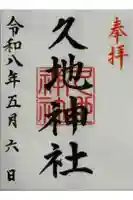 奉拝
久地神社
令和八年五月六日